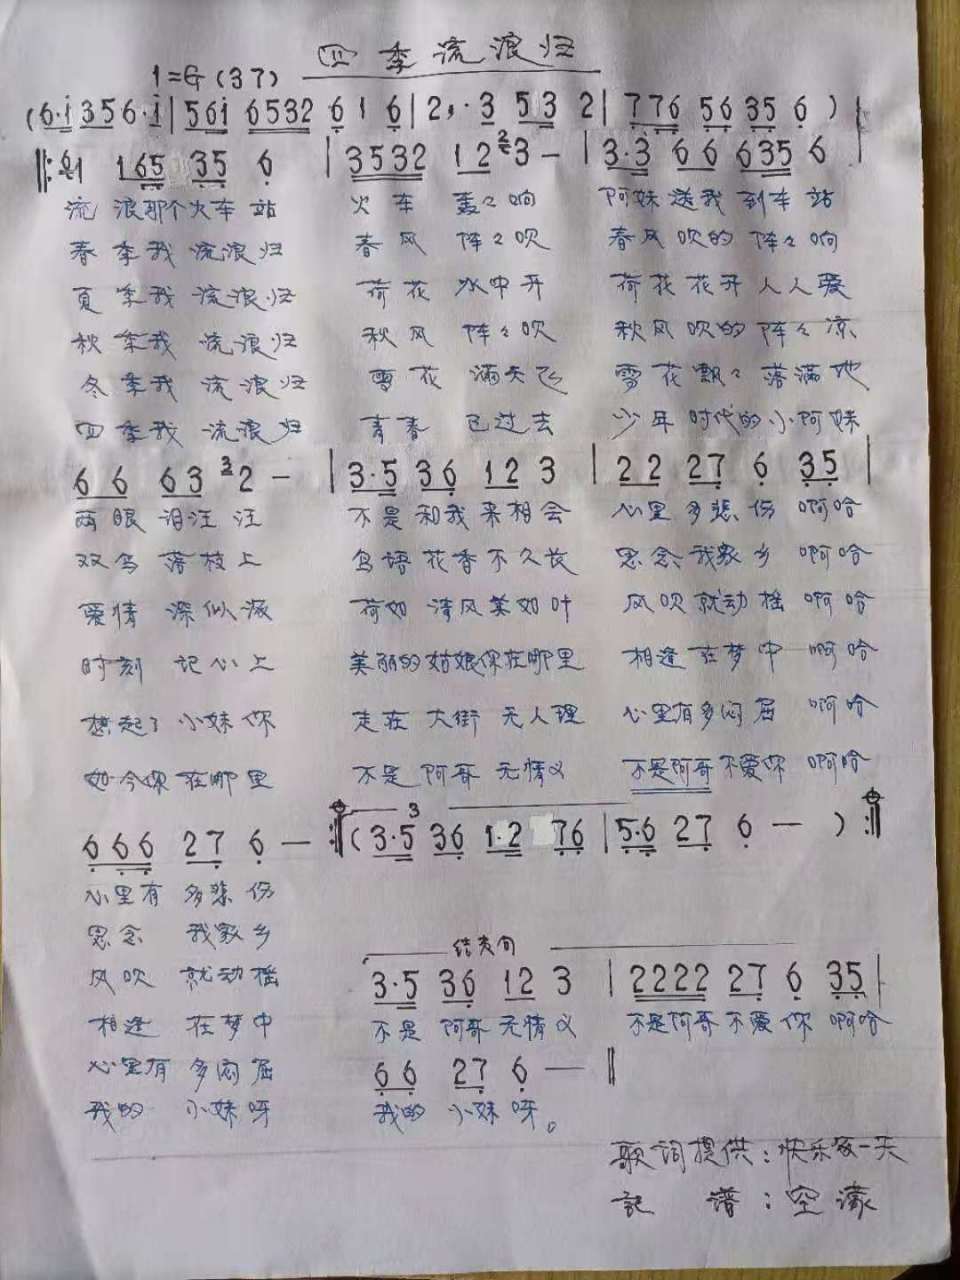 四季流浪归
1=G (37)
(6·i 356·i | 561 6532 6 1 6 | 2,·3 53 2 | 776 56 35 6 )
‖: 61 165 35 6 | 3532 12 23 — | 3·3 66 635 6
流浪那个火车站 火车轰々响 阿妹送我到车站
春季我流浪归 春风阵々吹 春风吹的阵々响
夏季我流浪归 荷花水中开 荷花花开人人爱
秋季我流浪归 秋风阵々吹 秋风吹的阵々凉
冬季我流浪归 雪花满天飞 雪花飘々落满地
四季我流浪归 青春已过去 少年时代的小阿妹
66 63 32 — | 3·5 36 12 3 | 22 27 6 35 |
两眼泪汪汪 不是和我来相会 心里多悲伤 啊哈
双鸟落枝上 鸟语花香不久长 思念我家乡 啊哈
爱情深似海 荷如清风美如叶 风吹就动摇 啊哈
时刻记心上 美丽的姑娘你在哪里 相逢在梦中 啊哈
想起了小妹你 走在大街无人理 心里有多闷屈 啊哈
如今你在哪里 不是阿哥无情义 不是阿哥不爱你 啊哈
666 27 6 — :‖ ( 3·5 36 1·2 76 | 5·6 27 6 — ) :‖
3
心里有多悲伤
思念我家乡
风吹就动摇
相逢在梦中
心里有多闷屈
我的小妹呀
结束句
3·5 36 12 3 | 2222 27 6 35 |
不是阿哥无情义 不是阿哥不爱你 啊哈
66 27 6 — ‖
我的小妹呀。
歌词提供:快乐每一天
记谱:空濛